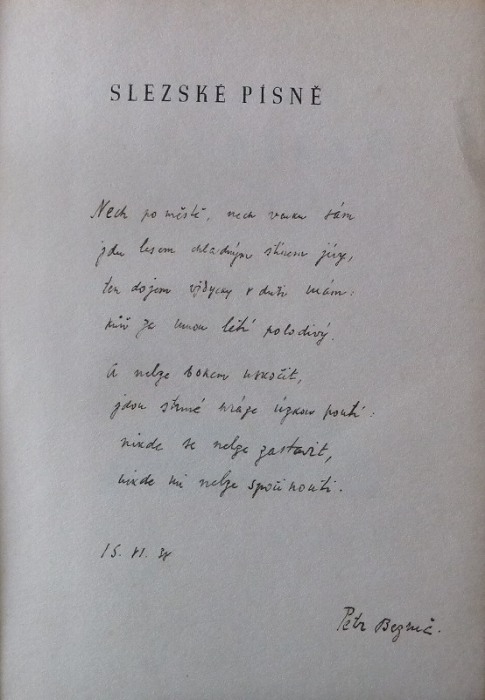 SLEZSKÉ PÍSNĚ
Nech po městě, nech venku sám
jdu lesem chladným stínem jívy,
ten dojem vždycky v duši mám:
kůň za mnou letí polodivý.
A nelze bokem uskočit,
jdou strmé hráze úzkou poutí:
nikde se nelze zastavit,
nikde mi nelze spočinouti.
15. VI. 38
Petr Bezruč.